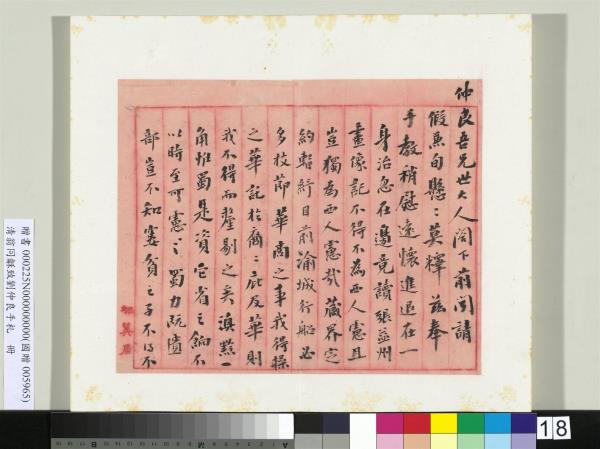 仲良吾兄世大人閣下前聞請
假焦旬懸〻莫釋茲奉
手教稍慰遠懷進退在一
身治忽在邊竟讀張益州
畫像記不得不為西人憲且
豈獨為西人憲哉藏界定
約暫紓目前渝城行船必
多枝節華商之事我得操
之華託於商〻庇及華則
我不得而釐剔之矣滇黔一
角惟蜀是資它省之餉不
以時至可憲〻蜀力既匱
鄙豈不知窶貧之子不得不
贈書 000225N000000000(國贈 005965)
清翁同龢致劉仲良手札 冊
A
M
B
18